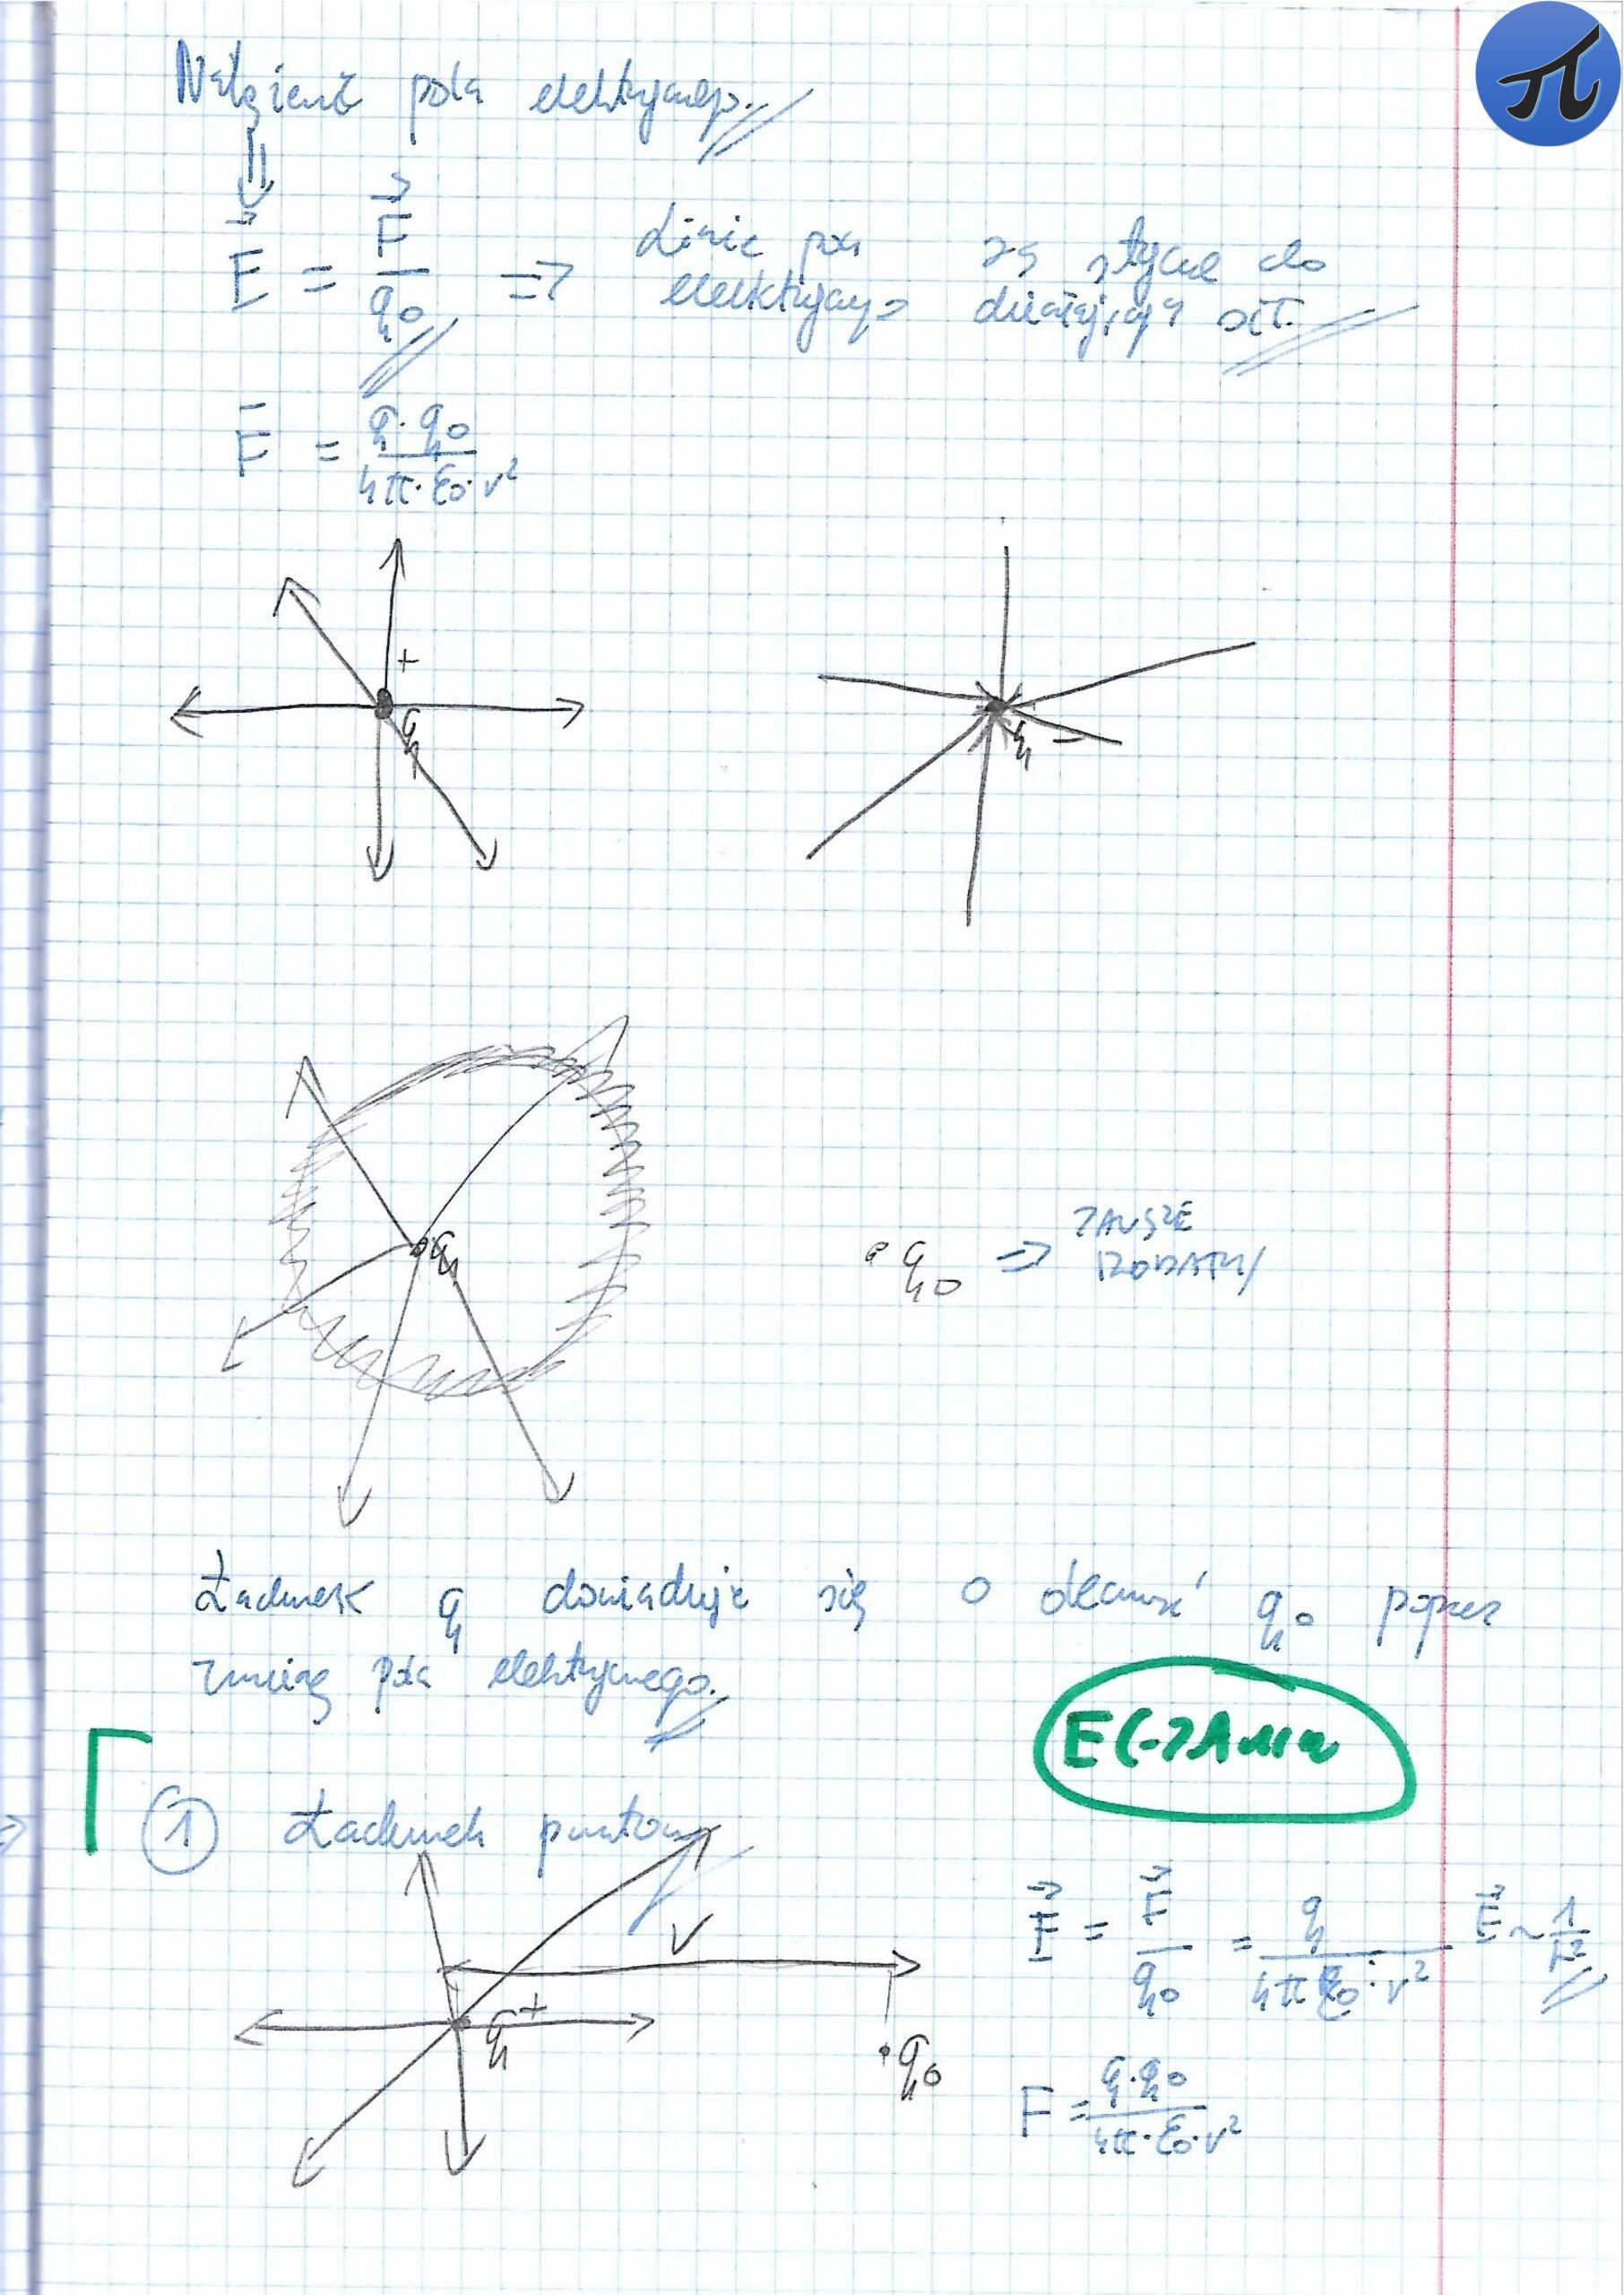 Natężenie pola elektrycznego.
E = F / q₀ => Linie pola elektrycznego są styczne do działających sił.
F = q · q₀ / 4π · ε₀ · r²
+
q
q -
q
q₀ => ZAWSZE DODATNI
Ładunek q dowiaduje się o obecność q₀ poprzez
zmianę pola elektrycznego.
① Ładunek punktowy
r
q +
q₀
E = F / q₀ = q / 4π ε₀ · r² E ~ 1 / r²
F = q · q₀ / 4π · ε₀ · r²
π